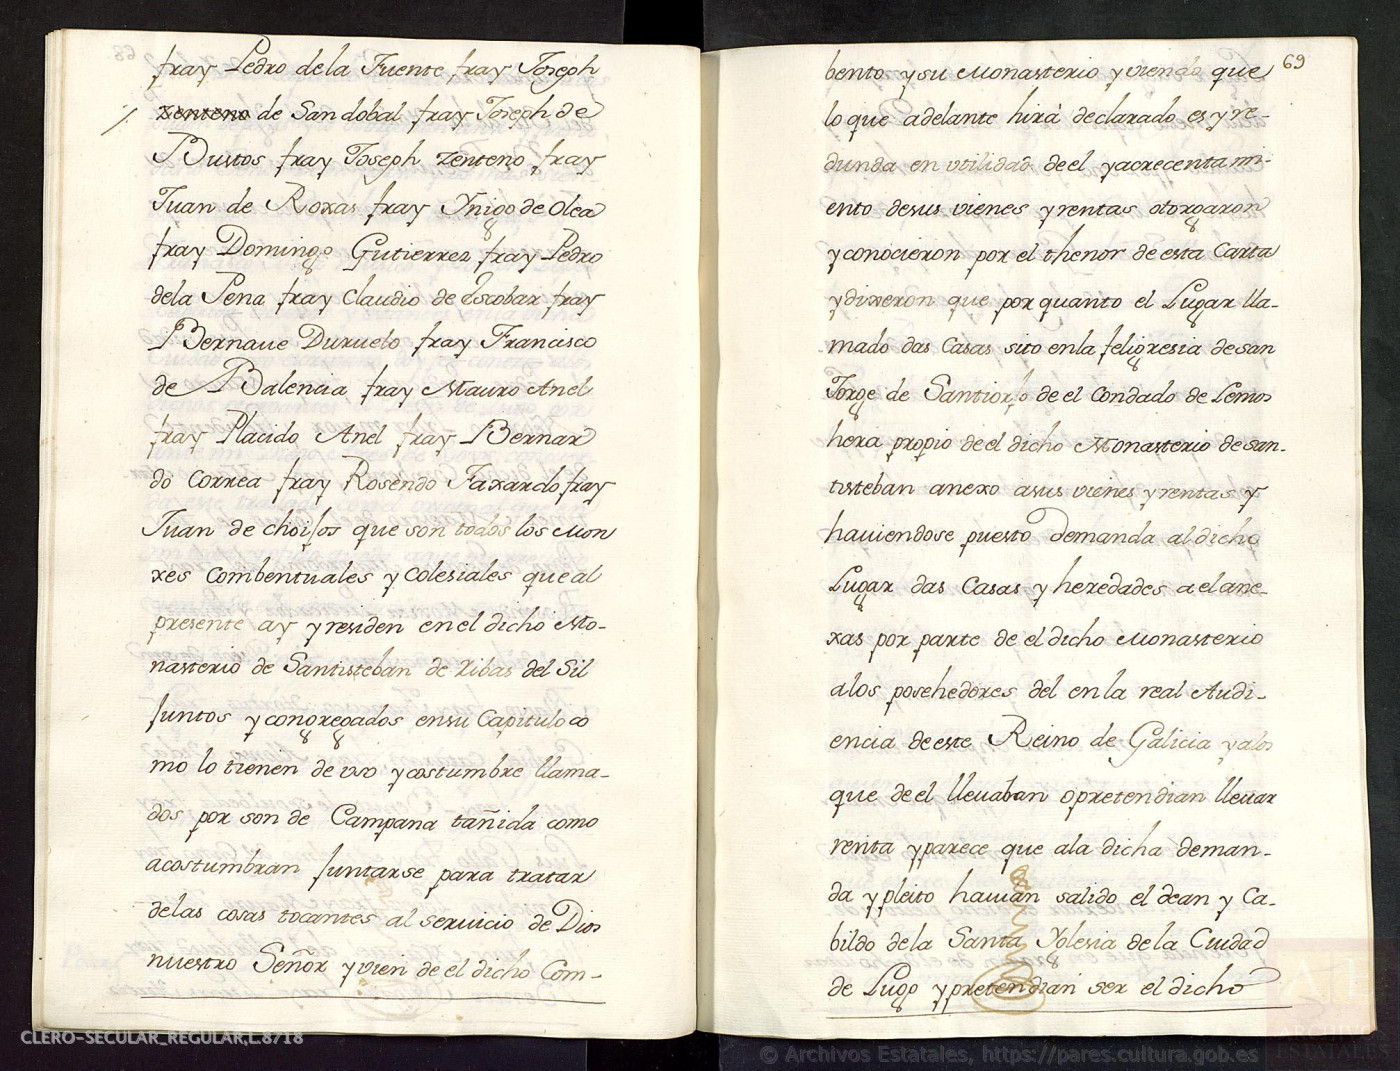 fray Pedro dela Fuente fray Joseph
zenteno de Sandobal fray Joseph de
Bustos fray Joseph zenteno fray
Juan de Roxas fray Ynigo de Olea
fray Domingo Gutierrez fray Pedro
dela Pena fray Claudio de Escobar fray
Bernaue Duruelo fray Francisco
de Balencia fray Mauro Anel
fray Placido Anel fray Bernar
do Correa fray Rosendo Faxardo fray
Juan de que son todos los Mon
xes Combentuales y Colesiales que al
presente ay y residen en el dicho Mo-
nasterio de Santisteban de ribas del Sil
Juntos y congregados en su Capitulo co
mo lo tienen de vso y costumbre llama-
dos por son de Campana tañida como
acostumbran Juntarse para tratar
delas cosas tocantes al seruicio de Dios
nuestro Señor y vien de el dicho Com-
69
bento y su Monasterio y viendo que
lo que adelante hirà declarado es y re-
dunda en vtilidad de el y acrecentami-
ento desus vienes y rentas otorgaron
y conocieron por el thenor de esta Carta
y dixeron que por quanto el Lugar lla-
mado das Casas sito enla feligresia de san
Jorge de Santiorjo de el Condado de Lemos
hera propio de el dicho Monasterio de san-
tisteban anexo asus vienes y rentas y
hauiendose puesto Demanda al dicho
Lugar das Casas y heredades a el ane-
xas por parte de el dicho Monasterio
alos posehedores del en la real Audi-
encia de este Reino de Galicia y alos
que de el lleuaban o pretendian lleuar
renta y parece que ala dicha deman-
da y pleito hauian salido el dean y Ca-
bildo de la Santa Yglesia de la Ciudad
de Lugo y pretendian ser el dicho
CLERO-SECULAR_REGULAR,L.8718
© Archivos Estatales, https://pares.cultura.gob.es